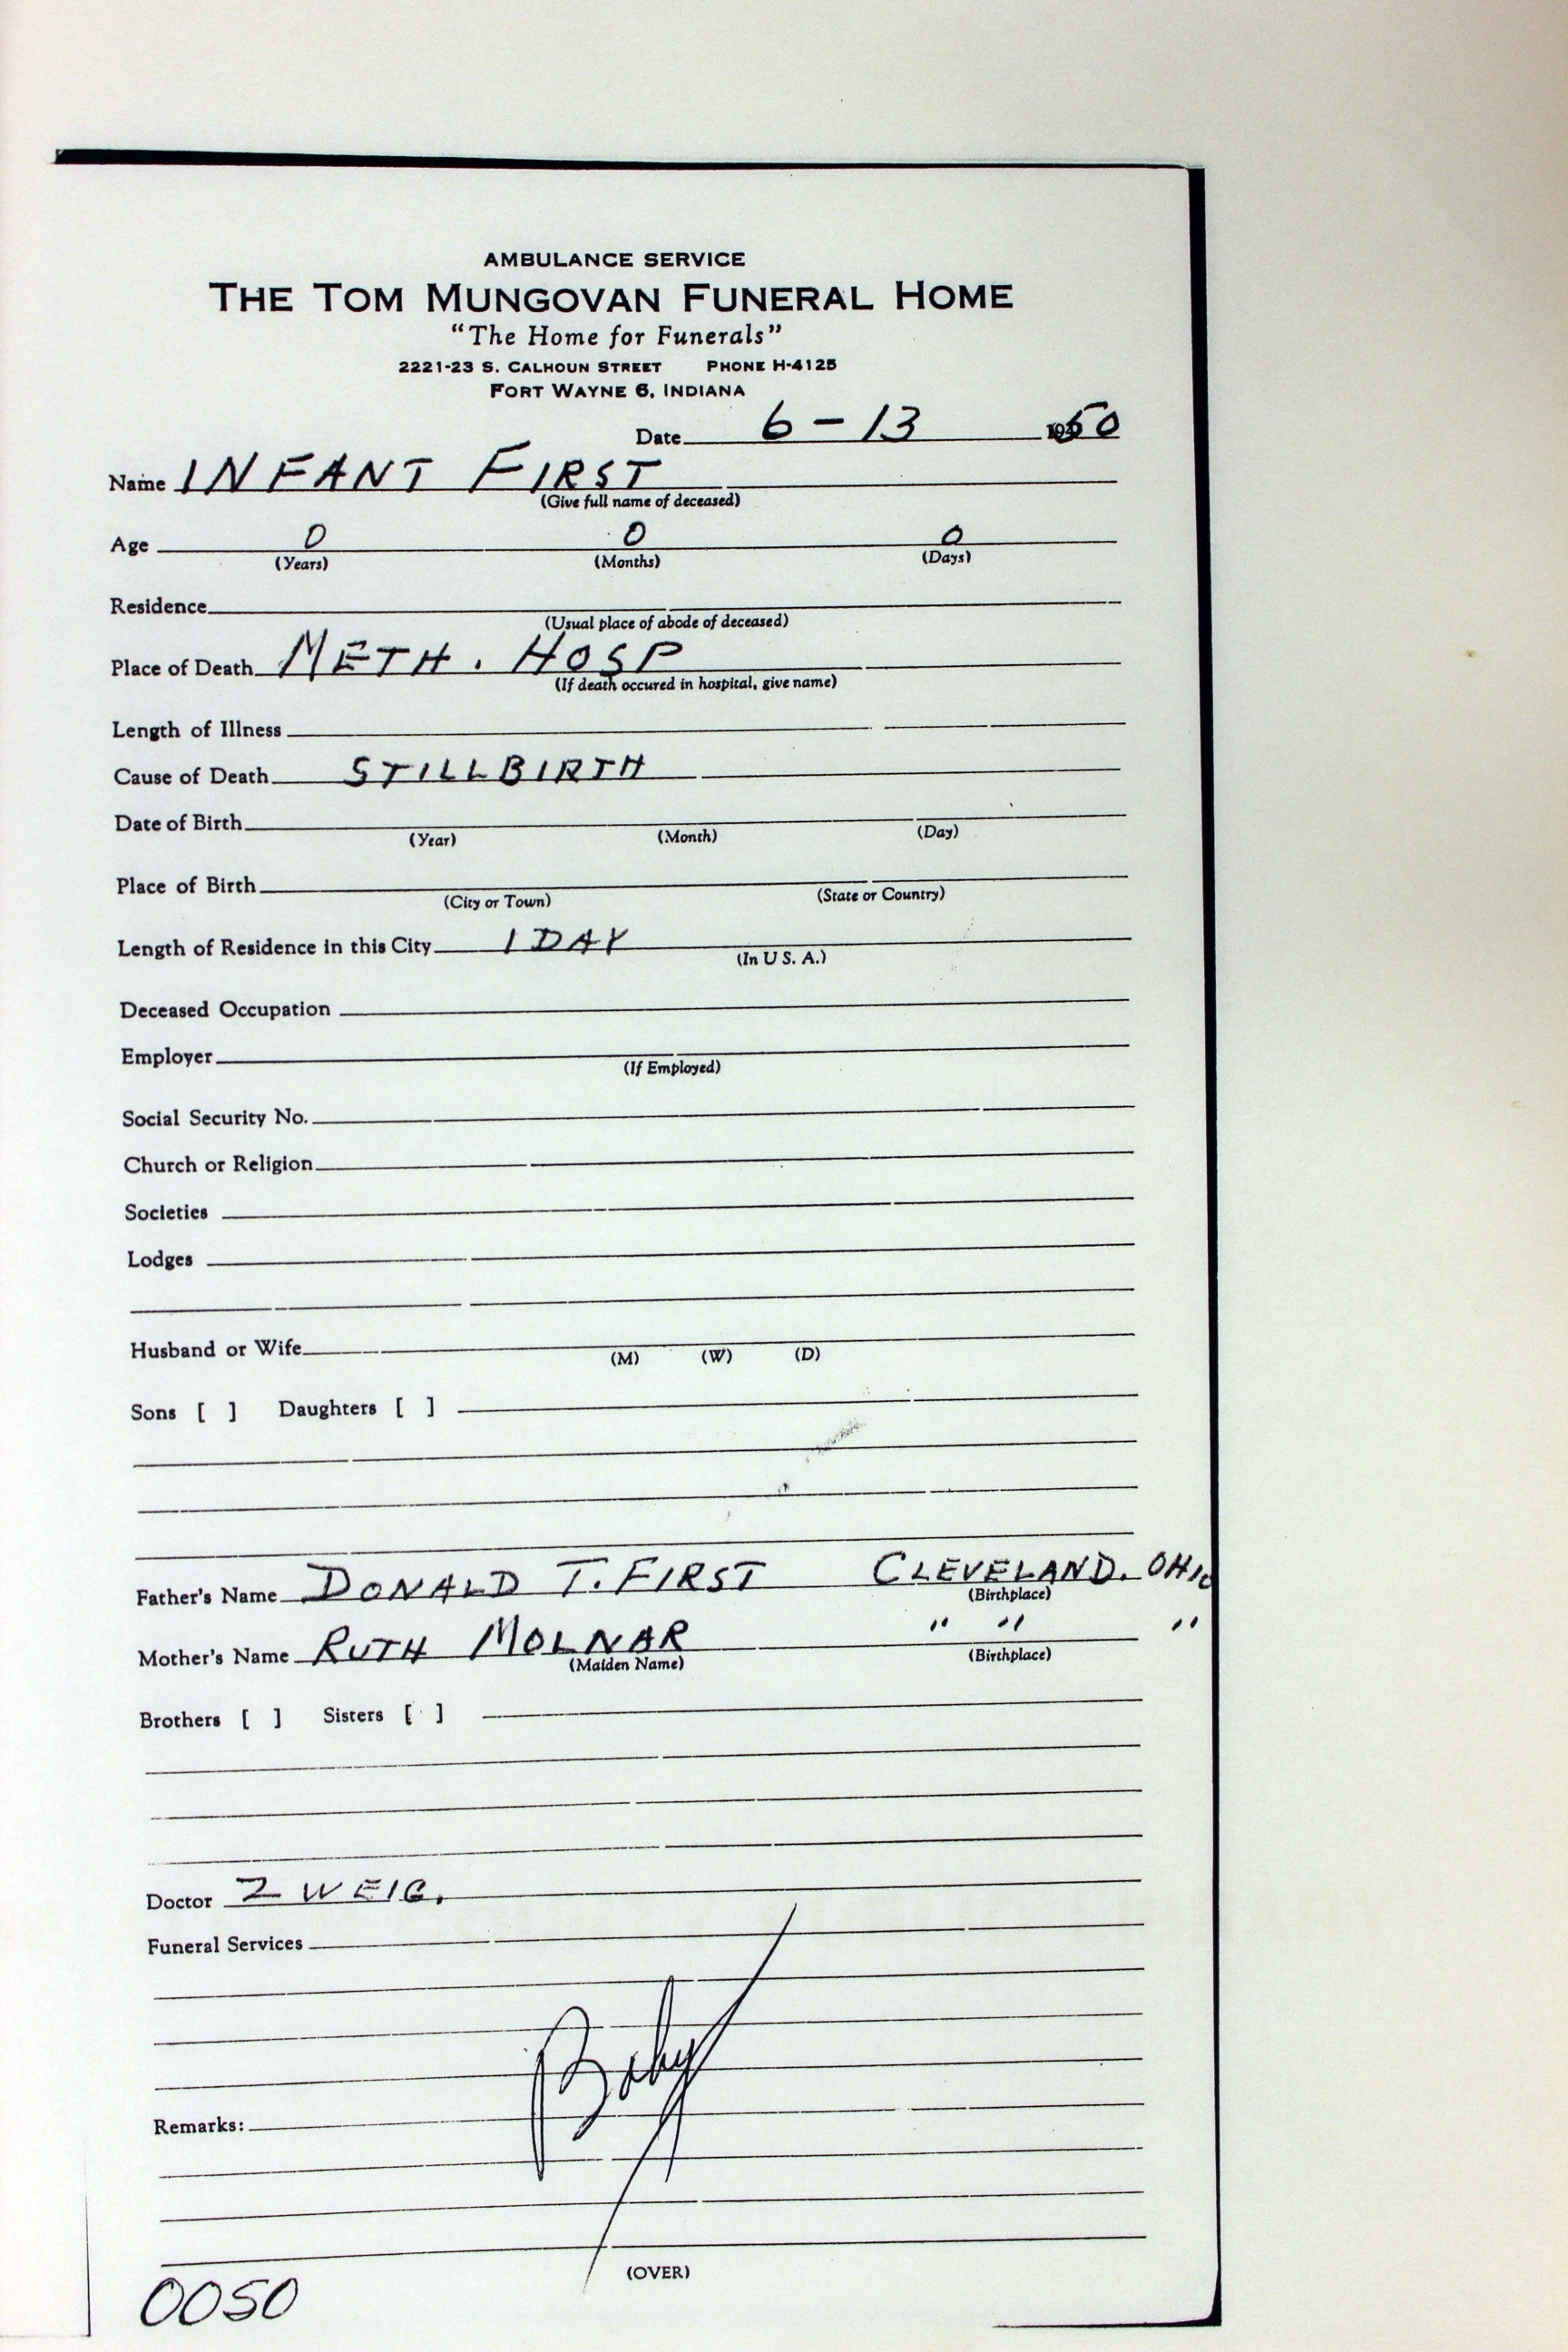 AMBULANCE SERVICE
THE TOM MUNGOVAN FUNERAL HOME
"The Home for Funerals"
2221-23 S. CALHOUN STREET PHONE H-4125
FORT WAYNE 6, INDIANA
Date 6-13 1950
Name INFANT FIRST
(Give full name of deceased)
Age 0 0 0
(Years) (Months) (Days)
Residence
(Usual place of abode of deceased)
Place of Death METH. HOSP
(If death occured in hospital, give name)
Length of Illness
Cause of Death STILLBIRTH
Date of Birth
(Year) (Month) (Day)
Place of Birth
(City or Town) (State or Country)
Length of Residence in this City 1 DAY
(In U S. A.)
Deceased Occupation
Employer
(If Employed)
Social Security No.
Church or Religion
Societies
Lodges
Husband or Wife
(M) (W) (D)
Sons [ ] Daughters [ ]
Father's Name DONALD T. FIRST CLEVELAND. OHIO
(Birthplace)
Mother's Name RUTH MOLNAR " " "
(Maiden Name) (Birthplace)
Brothers [ ] Sisters [ ]
Doctor ZWEIG.
Funeral Services
Baby
Remarks:
(OVER)
0050